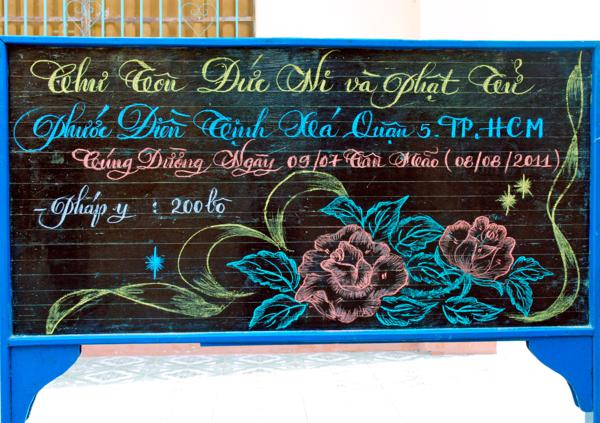 Chư Tôn Đức Ni và Phật Tử
Phước Điền Tịnh Xá Quận 5. TP. HCM
Cúng Dường Ngày 09/07 Tân Mão (08/08/2011)
- Pháp y : 200 bộ